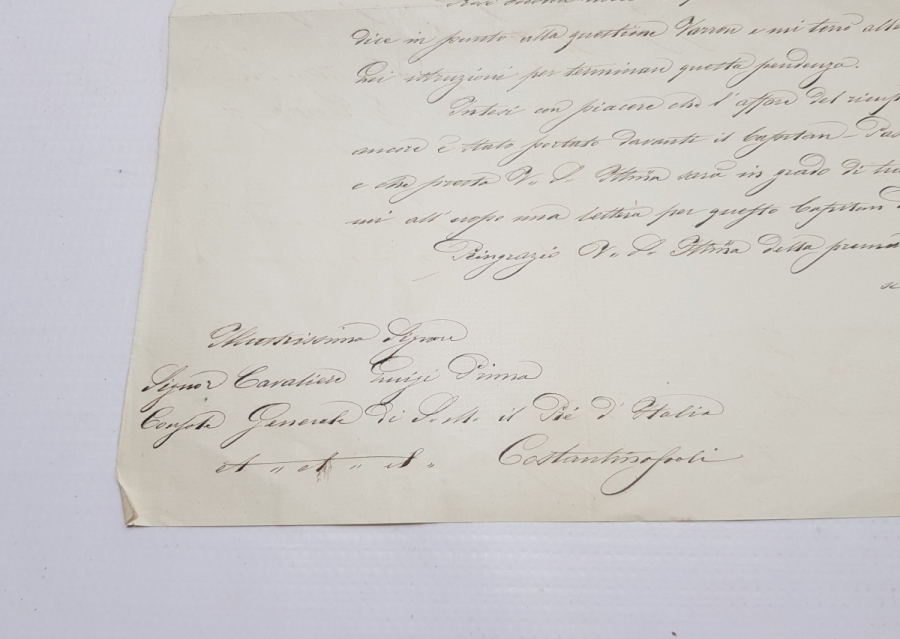 dice in punto alla questione Varron e mi terrò alle
Lei istruzioni per terminare questa pendenza.
Intesi con piacere che l'affare del ricup
ancore è stato portato davanti il Capitan-Pas
e che presto V. S. Illma sarà in grado di
mi all'uopo una lettera per questo Capitan
Ringrazio V. S. Illma della premu
Illustrissimo Signore
Signor Cavaliere Luigi Pinna
Console Generale di S. M. il Re d'Italia
et " et " et "    Costantinopoli